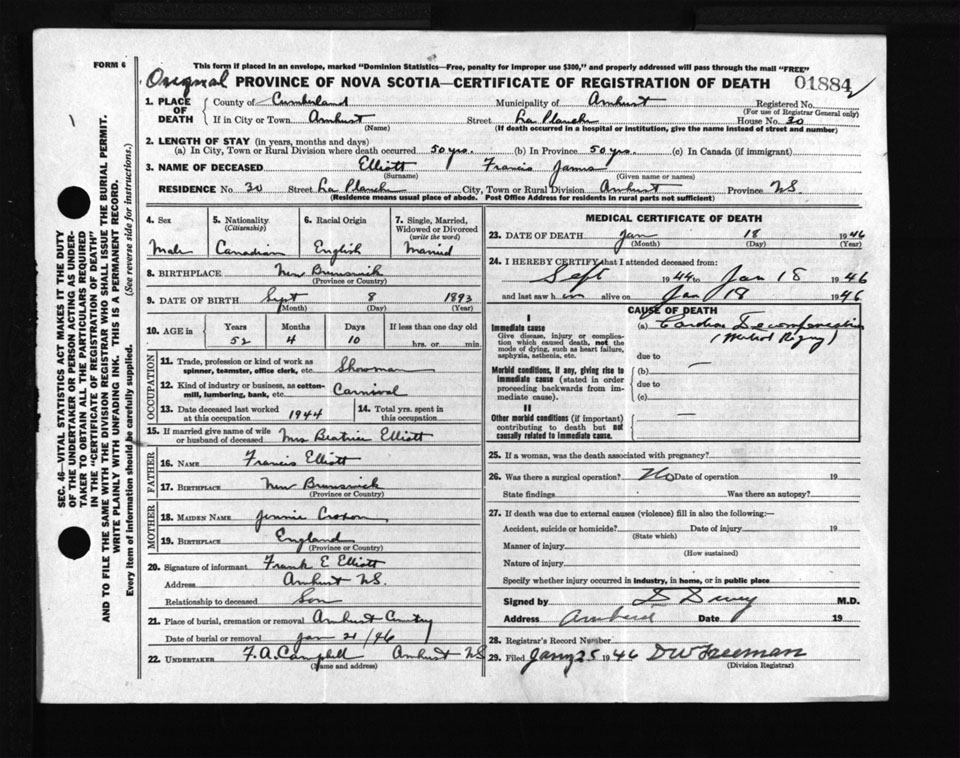 FORM 6
This form if placed in an envelope, marked "Dominion Statistics—Free, penalty for improper use $300," and properly addressed will pass through the mail "FREE"
Original PROVINCE OF NOVA SCOTIA—CERTIFICATE OF REGISTRATION OF DEATH 01884
1. PLACE OF DEATH
County of Cumberland Municipality of Amherst Registered No.
(For use of Registrar General only)
If in City or Town Amherst Street La Planche House No. 30
(Name) (If death occurred in a hospital or institution, give the name instead of street and number)
2. LENGTH OF STAY (in years, months and days)
(a) In City, Town or Rural Division where death occurred 50 yrs. (b) In Province 50 yrs. (c) In Canada (if immigrant)
3. NAME OF DECEASED Elliott Francis James
(Surname) (Given name or names)
RESIDENCE No. 30 Street La Planche City, Town or Rural Division Amherst Province NS
(Residence means usual place of abode. Post Office Address for residents in rural parts not sufficient)
4. Sex Male
5. Nationality (Citizenship) Canadian
6. Racial Origin English
7. Single, Married, Widowed or Divorced (write the word) Married
8. BIRTHPLACE New Brunswick
(Province or Country)
9. DATE OF BIRTH Sept 8 1893
(Month) (Day) (Year)
10. AGE in Years Months Days If less than one day old
52 4 10 hrs. or min.
OCCUPATION
11. Trade, profession or kind of work as spinner, teamster, office clerk, etc. Showman
12. Kind of industry or business, as cotton-mill, lumbering, bank, etc. Carnival
13. Date deceased last worked at this occupation 1944
14. Total yrs. spent in this occupation
15. If married give name of wife or husband of deceased Mrs Beatrice Elliott
FATHER
16. NAME Francis Elliott
17. BIRTHPLACE New Brunswick
(Province or Country)
MOTHER
18. MAIDEN NAME Jennie
19. BIRTHPLACE England
(Province or Country)
20. Signature of informant Frank E Elliott
Address Amherst NS.
Relationship to deceased Son
21. Place of burial, cremation or removal Amherst
Date of burial or removal Jan 21/46
22. UNDERTAKER F. A. Campbell Amherst NS
(Name and address)
MEDICAL CERTIFICATE OF DEATH
23. DATE OF DEATH Jan 18 1946
(Month) (Day) (Year)
24. I HEREBY CERTIFY that I attended deceased from:
Sept 1944 to Jan 18 1946
and last saw him alive on Jan 18 1946
CAUSE OF DEATH
I
Immediate cause
Give disease, injury or complication which caused death, not the mode of dying, such as heart failure, asphyxia, asthenia, etc.
(a) Cardiac Decompensation
(Mitral
due to
Morbid conditions, if any, giving rise to immediate cause (stated in order proceeding backwards from immediate cause).
(b) —
due to
(c)
II
Other morbid conditions (if important) contributing to death but not causally related to immediate cause. —
25. If a woman, was the death associated with pregnancy?
26. Was there a surgical operation? No Date of operation 19
State findings Was there an autopsy?
27. If death was due to external causes (violence) fill in also the following:—
Accident, suicide or homicide? Date of injury 19
(State which)
Manner of injury
(How sustained)
Nature of injury
Specify whether injury occurred in industry, in home, or in public place
Signed by M.D.
Address Amherst Date 19
28. Registrar's Record Number
29. Filed Jany 25 1946 DW Freeman
(Division Registrar)
SEC. 46—VITAL STATISTICS ACT MAKES IT THE DUTY
OF THE UNDERTAKER OR PERSON ACTING AS UNDER-
TAKER TO OBTAIN ALL THE PARTICULARS REQUIRED
IN THE "CERTIFICATE OF REGISTRATION OF DEATH"
AND TO FILE THE SAME WITH THE DIVISION REGISTRAR WHO SHALL ISSUE THE BURIAL PERMIT.
WRITE PLAINLY WITH UNFADING INK. THIS IS A PERMANENT RECORD.
Every item of information should be carefully supplied. (See reverse side for instructions.)